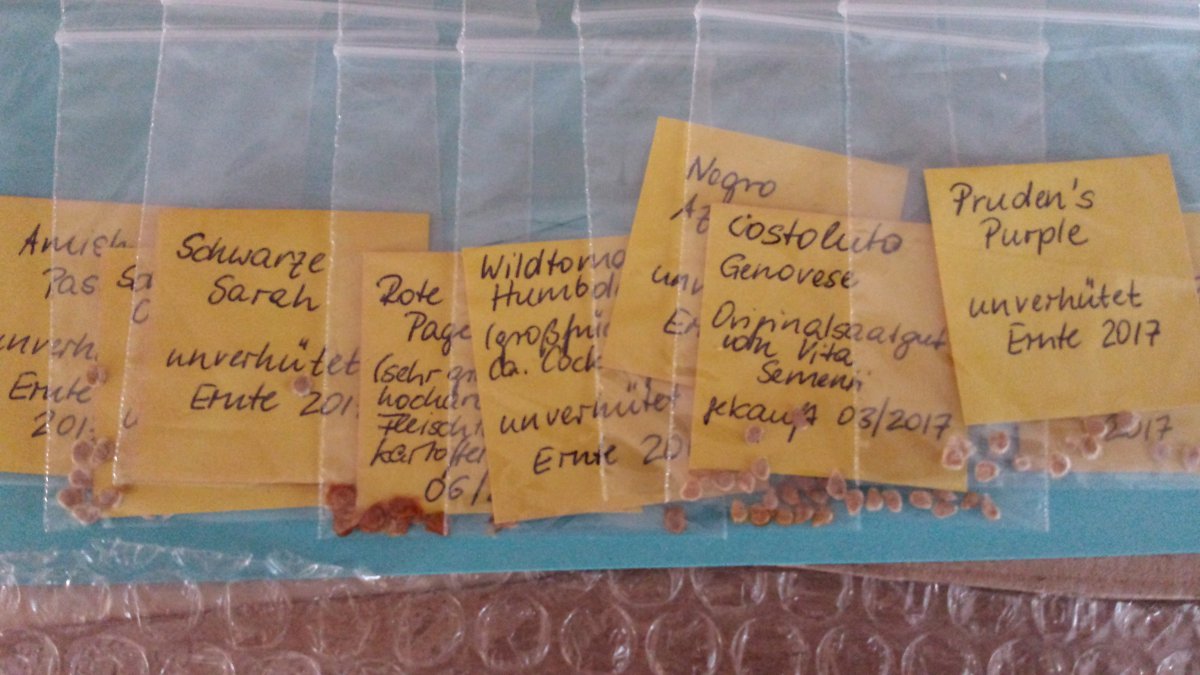 Amish
Pas
unverh.
Ernte
201
Sa
C
Schwarze
Sarah
unverhütet
Ernte 201
Rote
Page
(sehr gr
hocharo
Fleisch
kartoffe
06/
Wildtoma
Humbol
(großfrü
ca. Cock
unverhütet
Ernte 20
Negro
Az
unv
Er
Costoluto
Genovese
Originalsaatgut
von Vita
Sementi
gekauft 03/2017
Pruden's
Purple
unverhütet
Ernte 2017
2017